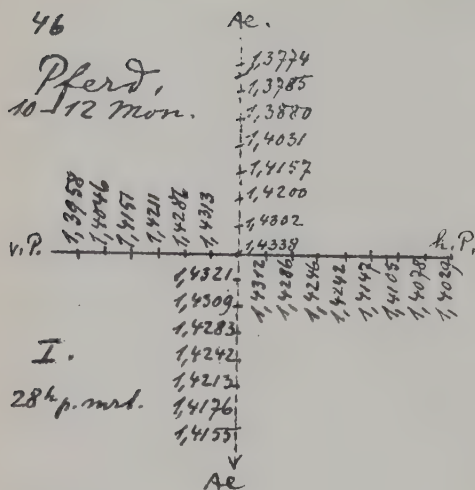 46
Ae.
Pferd,
10-12 Mon.
1,3774
1,3785
1,3880
1,4031
1,4157
1,4200
1,4302
1,4338
v.P.
1,3958
1,4046
1,4151
1,4211
1,4286
1,4313
h.P.
1,4312
1,4286
1,4246
1,4242
1,4147
1,4105
1,4078
1,4029
1,4321
1,4309
1,4283
1,4242
1,4213
1,4176
1,4155
I.
28h p. mrt.
Ae